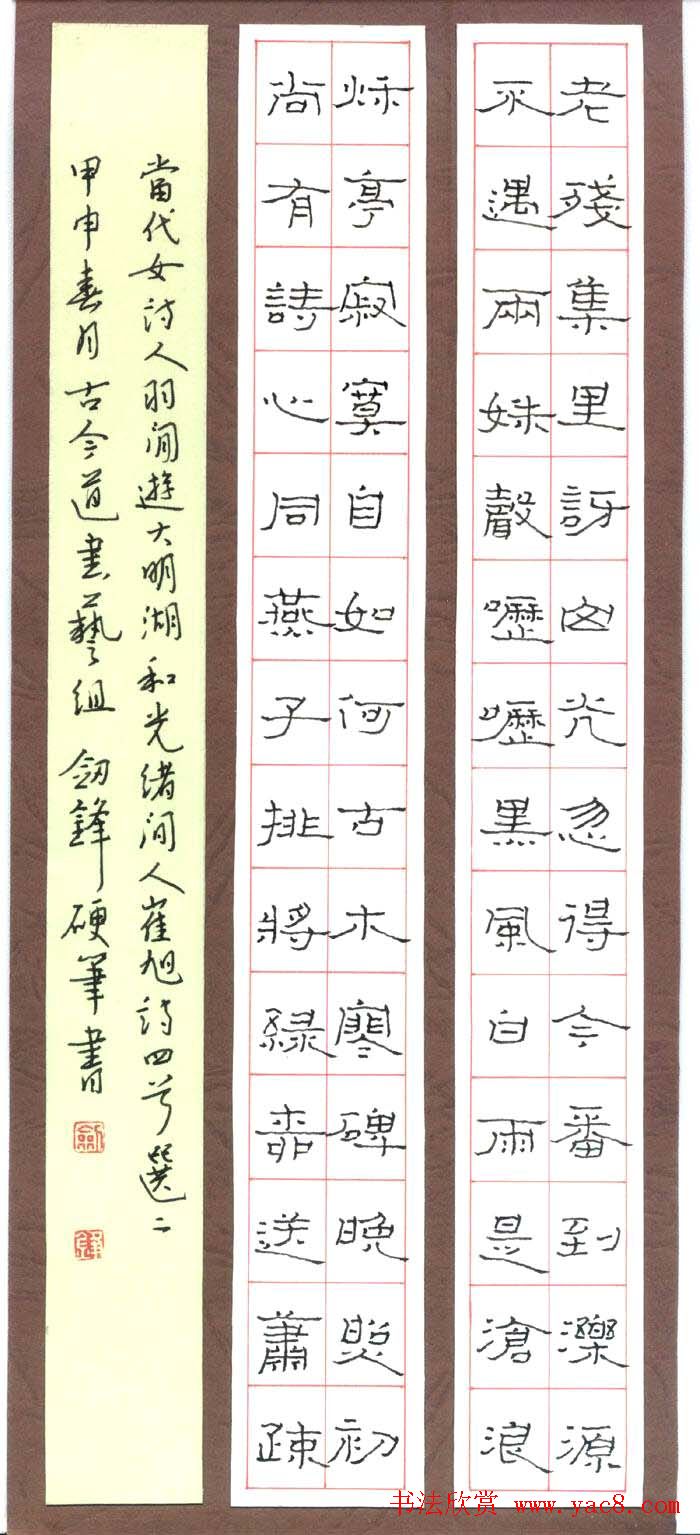 老殘集里訝光忽得今番到濼源
不遇兩姝聲嚦嚦黑風白雨是滄浪
秌亭寂寞自如何古木寒碑晚照初
尚有詩心同燕子排將綠送蕭疎
當代女詩人羽閒遊大明湖和光緒間人崔旭詩四首選二
甲申春月古今道書藝組 劍鋒硬筆書
劍
鋒
书法欣赏 www.yac8.com